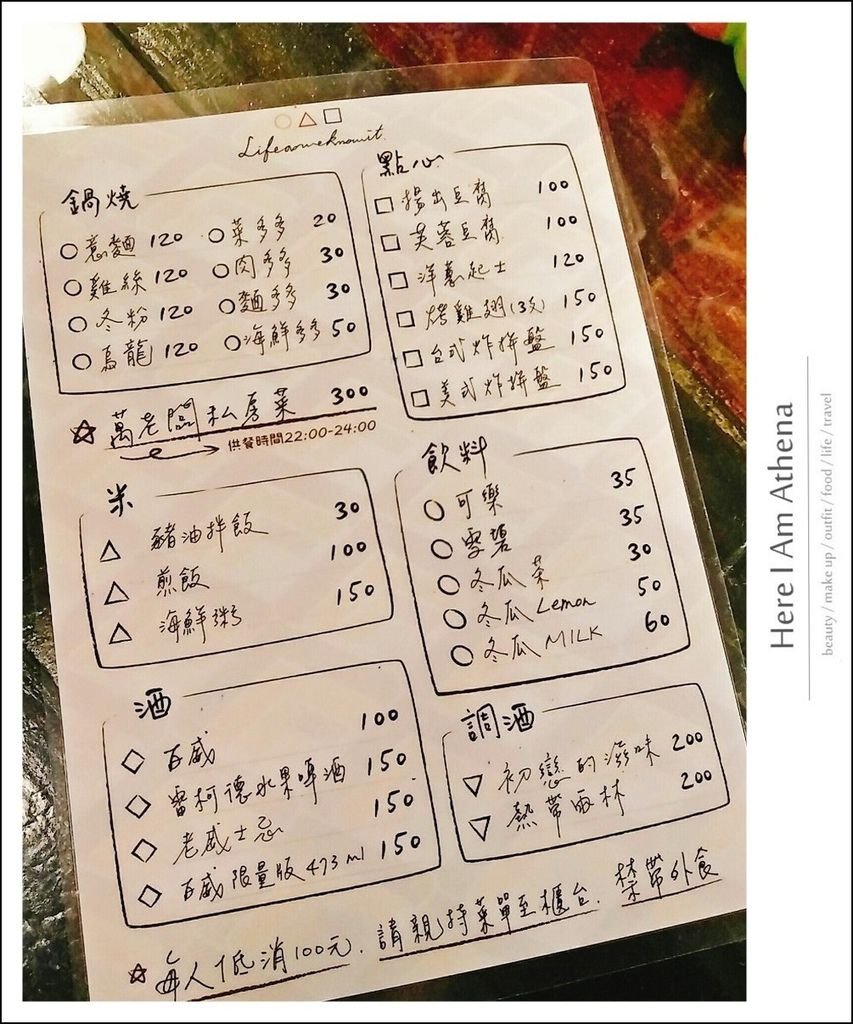 Lifeasweknowit.
鍋燒
意麵 120 菜多多 20
雞絲 120 肉多多 30
冬粉 120 麵多多 30
烏龍 120 海鮮多多 50
萬老闆私房菜 300
供餐時間22:00-24:00
點心
揚出豆腐 100
芙蓉豆腐 100
洋蔥起士 120
烤雞翅(3支) 150
台式炸拼盤 150
美式炸拼盤 150
米
豬油拌飯 30
煎飯 100
海鮮粥 150
飲料
可樂 35
雪碧 35
冬瓜茶 30
冬瓜 Lemon 50
冬瓜 MILK 60
酒
百威 100
雷柯德水果啤酒 150
老威士忌 150
百威限量版 473 ml 150
調酒
初戀的滋味 200
熱帶雨林 200
每人低消100元. 請親持菜單至櫃台. 禁帶外食
Here I Am Athena
beauty / make up / outfit / food / life / travel